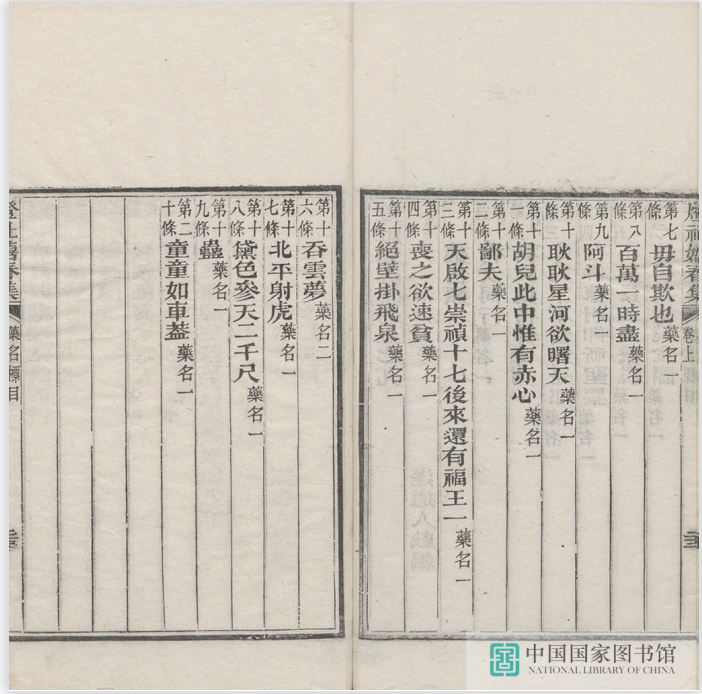 卷上
第七條 毋自欺也 藥名一
第八條 百萬一時盡 藥名一
第九條 阿斗 藥名一
第十條 耿耿星河欲曙天 藥名一
第十一條 胡兒此中惟有赤心 藥名一
第十二條 鄙夫 藥名一
第十三條 天啟七崇禎十七後來還有福王一 藥名一
第十四條 喪之欲速貧 藥名一
第十五條 絕壁掛飛泉 藥名一
第十六條 吞雲夢 藥名二
第十七條 北平射虎 藥名一
第十八條 黛色參天二千尺 藥名一
第十九條 蠱 藥名一
第二十條 童童如車葢 藥名一
春集 藥名標目
中国国家图书馆
NATIONAL LIBRARY OF CHINA